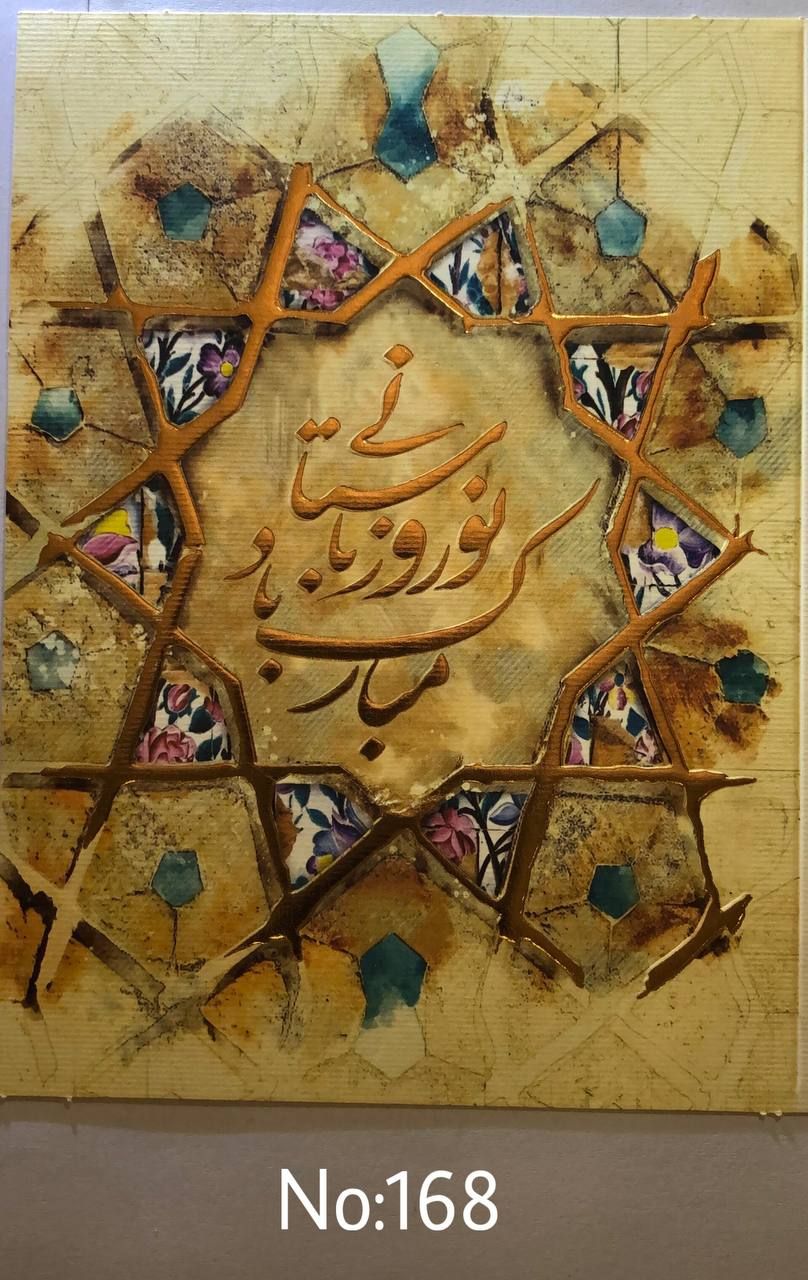 نوروز باستانی
مبارک باد
No:168